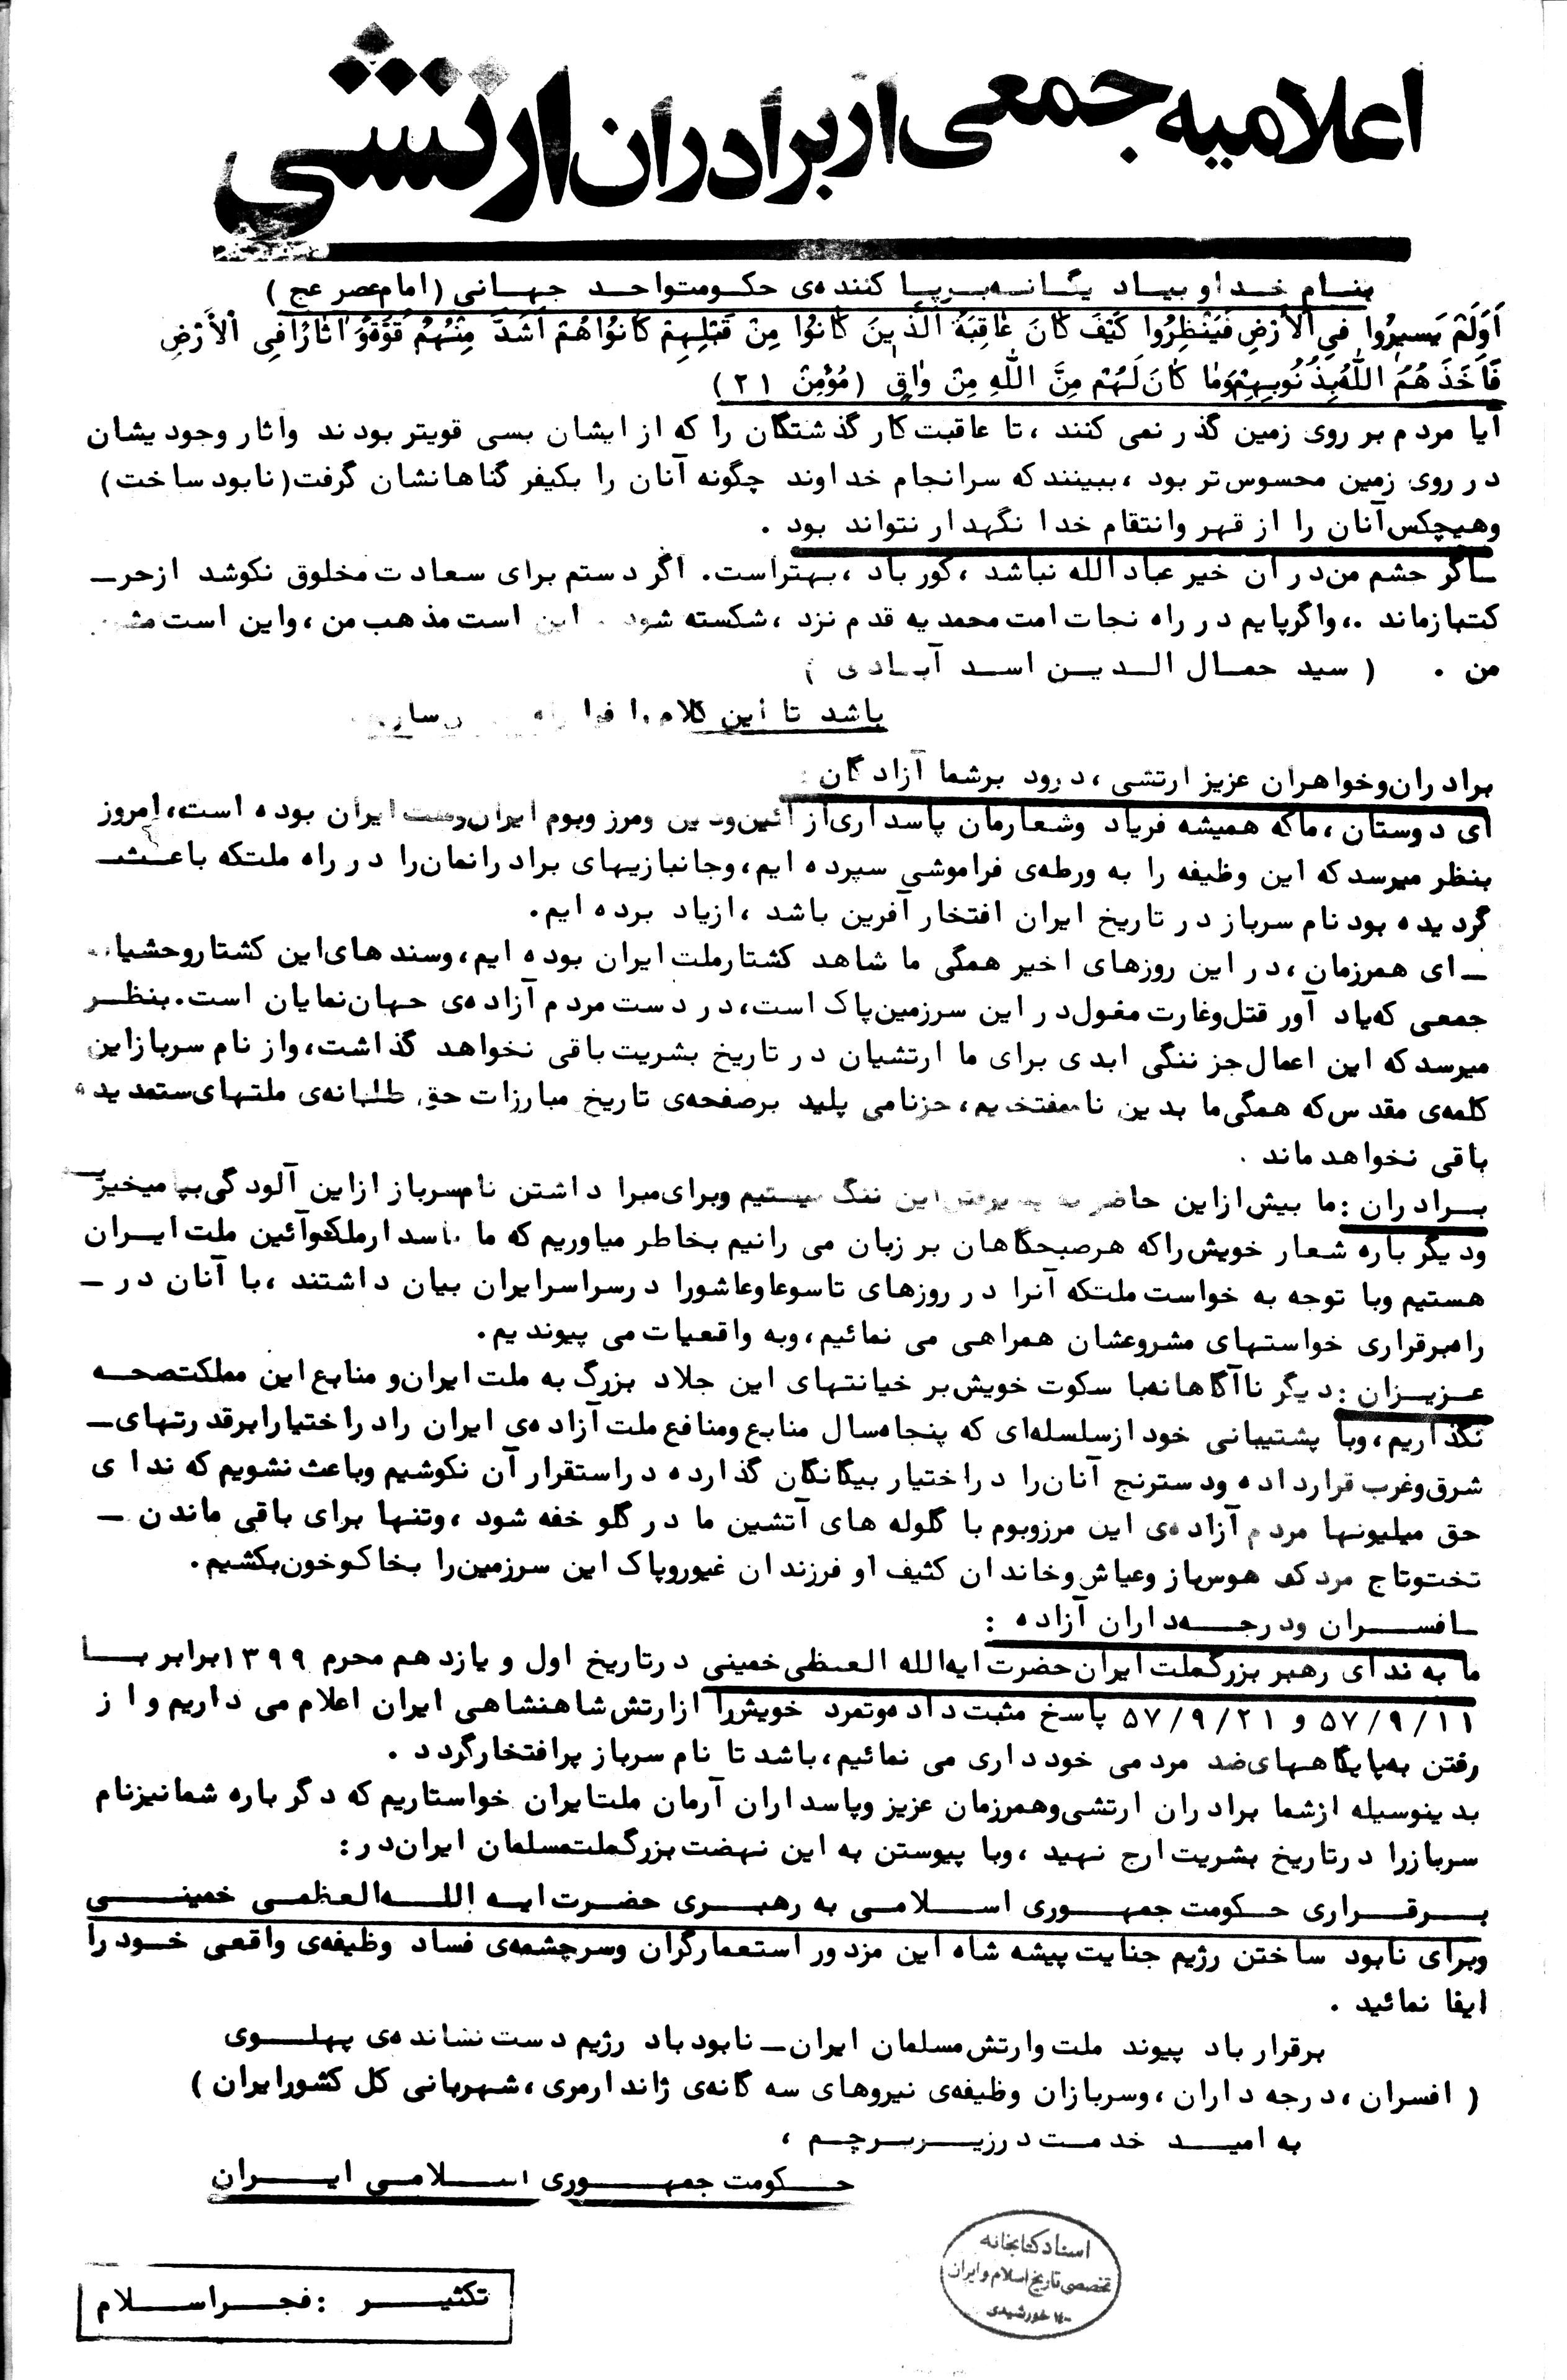 اعلامیه جمعی از برادران ارتشی
بنام خدا و بیاد یگانه برپا کننده‌ی حکومت واحد جهانی (امام عصر عج)
اَوَلَمْ یَسیرُوا فیِ الْاَرْضِ فَیَنْظِرُوا کَیْفَ کانَ عاقِبَةُ الَّذینَ کانُوا مِنْ قَبْلِهِمْ کانُوا هُمْ اَشَدَّ مِنْهُمْ قُوَّةً وَ اثارًا فِی الْاَرْضِ
فَاَخَذَهُمُ اللّٰهُ بِذُنُوبِهِمْ وَما کانَ لَهُمْ مِنَّ اللّٰهِ مِنْ واقٍ (مُؤْمِنْ ۲۱)
آیا مردم بر روی زمین گذر نمی کنند ، تا عاقبت کار گذشتگان را که از ایشان بسی قویتر بودند واثار وجودیشان
در روی زمین محسوس تر بود ، ببینند که سرانجام خداوند چگونه آنان را بکیفر گناهانشان گرفت (نابود ساخت)
وهیچکس آنان را از قهر وانتقام خدا نگهدار نتواند بود .
ـ اگر چشم من در آن خیر عبادالله نباشد ، کور باد ، بهتراست. اگر دستم برای سعادت مخلوق نکوشد ازحرـ
کت بازماند .، واگرپایم در راه نجات امت محمدیه قدم نزد ، شکسته شود . این است مذهب من ، واین است
من . ( سید جمال الدین اسد آبادی )
باشد تا این کلام را
برادران وخواهران عزیز ارتشی ، درود برشما آزادگان :
ای دوستان ، ماکه همیشه فریاد وشعارمان پاسداری از آئین ودین ومرز وبوم ایران وملت ایران بوده است، امروز
بنظر میرسد که این وظیفه را به ورطه‌ی فراموشی سپرده ایم، وجانبازیهای برادرانمان را در راه ملت که باعث
گردیده بود نام سرباز در تاریخ ایران افتخار آفرین باشد ، ازیاد برده ایم.
ـ ای همرزمان ، در این روزهای اخیر همگی ما شاهد کشتار ملت ایران بوده ایم، وسند های این کشتار وحشیانه
جمعی که یاد آور قتل وغارت مغول در این سرزمین پاک است، در دست مردم آزاده‌ی جهان نمایان است. بنظر
میرسد که این اعمال جز ننگی ابدی برای ما ارتشیان در تاریخ بشریت باقی نخواهد گذاشت، واز نام سرباز این
کلمه‌ی مقدس که همگی ما بدین نام مفتخریم، جزنامی پلید برصفحه‌ی تاریخ مبارزات حق طلبانه‌ی ملتهای ستمدیده
باقی نخواهد ماند .
برادران : ما بیش ازاین حاضر به پذیرفتن این ننگ نیستیم وبرای مبرا داشتن نام سرباز ازاین آلودگی بپا میخیزیـ
ودیگر باره شعار خویش را که هر صبحگاهان بر زبان می رانیم بخاطر میاوریم که ما پاسدار ملک وآئین ملت ایران
هستیم وبا توجه به خواست ملت که آنرا در روزهای تاسوعا وعاشورا درسراسرایران بیان داشتند ، با آنان در ـ
راه برقراری خواستهای مشروعشان همراهی می نمائیم، وبه واقعیات می پیوندیم.
عزیزان : دیگر ناآگاهانه با سکوت خویش بر خیانتهای این جلاد بزرگ به ملت ایران و منابع این مملکت صحه
نگذاریم، وبا پشتیبانی خود ازسلسله‌ای که پنجاه سال منابع ومنافع ملت آزاده‌ی ایران را در اختیار ابرقدرتهای ـ
شرق وغرب قرار داده ودسترنج آنان را در اختیار بیگانگان گذارده در استقرار آن نکوشیم وباعث نشویم که ندای
حق میلیونها مردم آزاده‌ی این مرزوبوم با گلوله های آتشین ما در گلو خفه شود ، وتنها برای باقی ماندن ـ
تخت وتاج مردکی هوسباز وعیاش وخاندان کثیف او فرزندان غیور وپاک این سرزمین را بخاک وخون بکشیم.
ـ افسران ودرجه داران آزاده :
ما به ندای رهبر بزرگ ملت ایران حضرت ایه الله العظمی خمینی درتاریخ اول و یازدهم محرم ۱۳۹۹ برابر با
۵۷/۹/۱۱ و ۵۷/۹/۲۱ پاسخ مثبت داده وتمرد خویش را ازارتش شاهنشاهی ایران اعلام می داریم و از
رفتن به پایگاههای ضد مردمی خودداری می نمائیم، باشد تا نام سرباز پرافتخار گردد .
بدینوسیله ازشما برادران ارتشی وهمرزمان عزیز وپاسداران آرمان ملت ایران خواستاریم که دگر باره شما نیز نام
سرباز را درتاریخ بشریت ارج نهید ، وبا پیوستن به این نهضت بزرگ ملت مسلمان ایران در :
برقراری حکومت جمهوری اسلامی به رهبری حضرت ایه الله العظمی خمینی
وبرای نابود ساختن رژیم جنایت پیشه شاه این مزدور استعمارگران وسرچشمه‌ی فساد وظیفه‌ی واقعی خود را
ایفا نمائید .
برقرار باد پیوند ملت وارتش مسلمان ایران ـ نابود باد رژیم دست نشانده‌ی پهلوی
( افسران ، درجه داران ، وسربازان وظیفه‌ی نیروهای سه گانه‌ی ژاندارمری ، شهربانی کل کشور ایران )
به امید خدمت در زیر پرچم ،
حکومت جمهوری اسلامی ایران
اسناد کتابخانه
تخصصی تاریخ اسلام و ایران
۱۴۰۰ خورشیدی
تکثیر : فجر اسلام